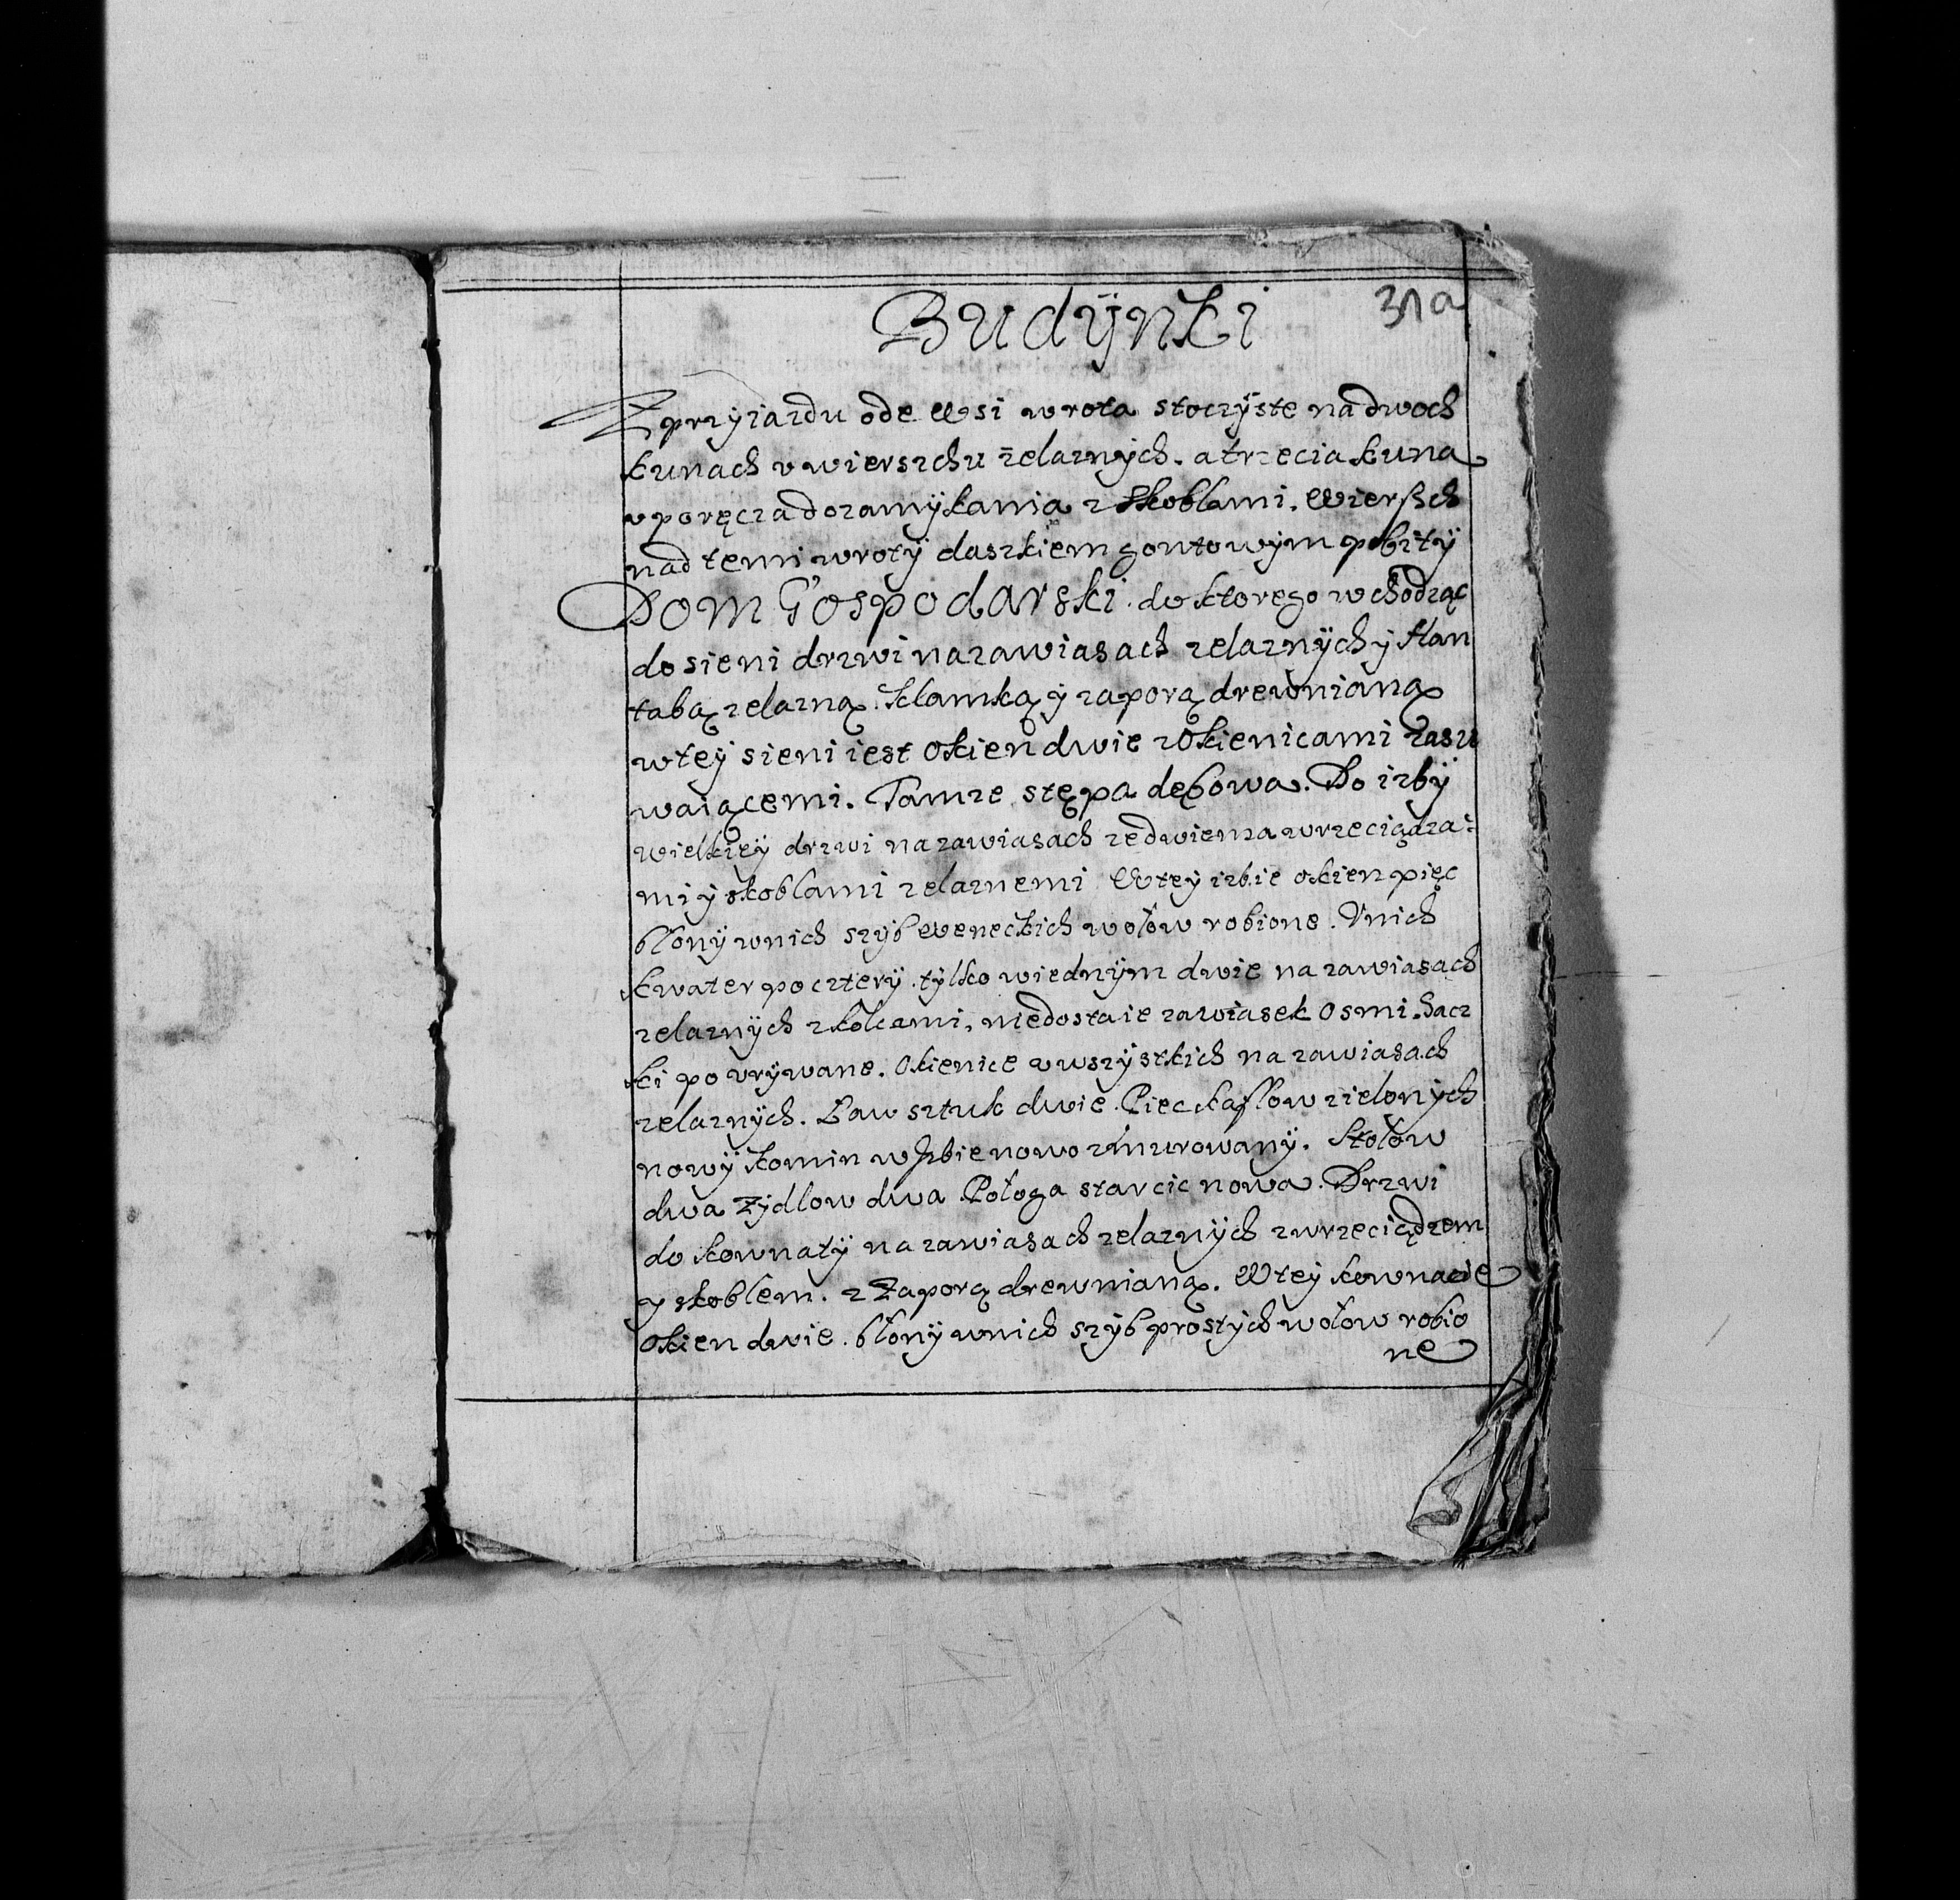 Budÿnki
Z przyiazdu ode Wsi wrota stoczÿste na dwoch
kunach v wierszchu żelaznÿch. a trzecia kuna
v poręcza do zamÿkania z skoblami. Wierßch
nad temi wrotÿ daszkiem gontowÿm pobitÿ
Dom Gospodarski. do ktorego wchodząc
do sieni drzwi na zawiasach zelaznÿch ÿ Han
tabą zelazną. klamką ÿ zaporą drewnianą
w teÿ sieni iest okien dwie z okienicami zasu
waiącemi. Tamze stępa dębowa. Do izbÿ
wielkieÿ drzwi na zawiasach ze dwiema wrzeciądza-
mi ÿ skoblami zelaznemi W teÿ izbie okien pięc
błonÿ w nich szÿb weneckich w ołow robione. V nich
kwater po czterÿ. tÿlko w iednÿm dwie na zawiasach
zelaznÿch z kolcami, niedostaie zawiasek osmi. Hacz
ki povrÿwane. Okienice v wszÿstkich na zawiasach
zelaznÿch. Ław sztuk dwie. Piec kaflow zielonÿch
nowÿ komin w Izbie nowo zmurowanÿ. Stołow
dwa Zÿdlow dwa Połoga starcic nowa. Drzwi
do kownatÿ na zawiasach zelaznÿch z wrzeciądzem
y skoblem. z Zaporą drewnianą. W teÿ kownacie
okien dwie. błonÿ w nich szÿb prostÿch w ołow robio
ne